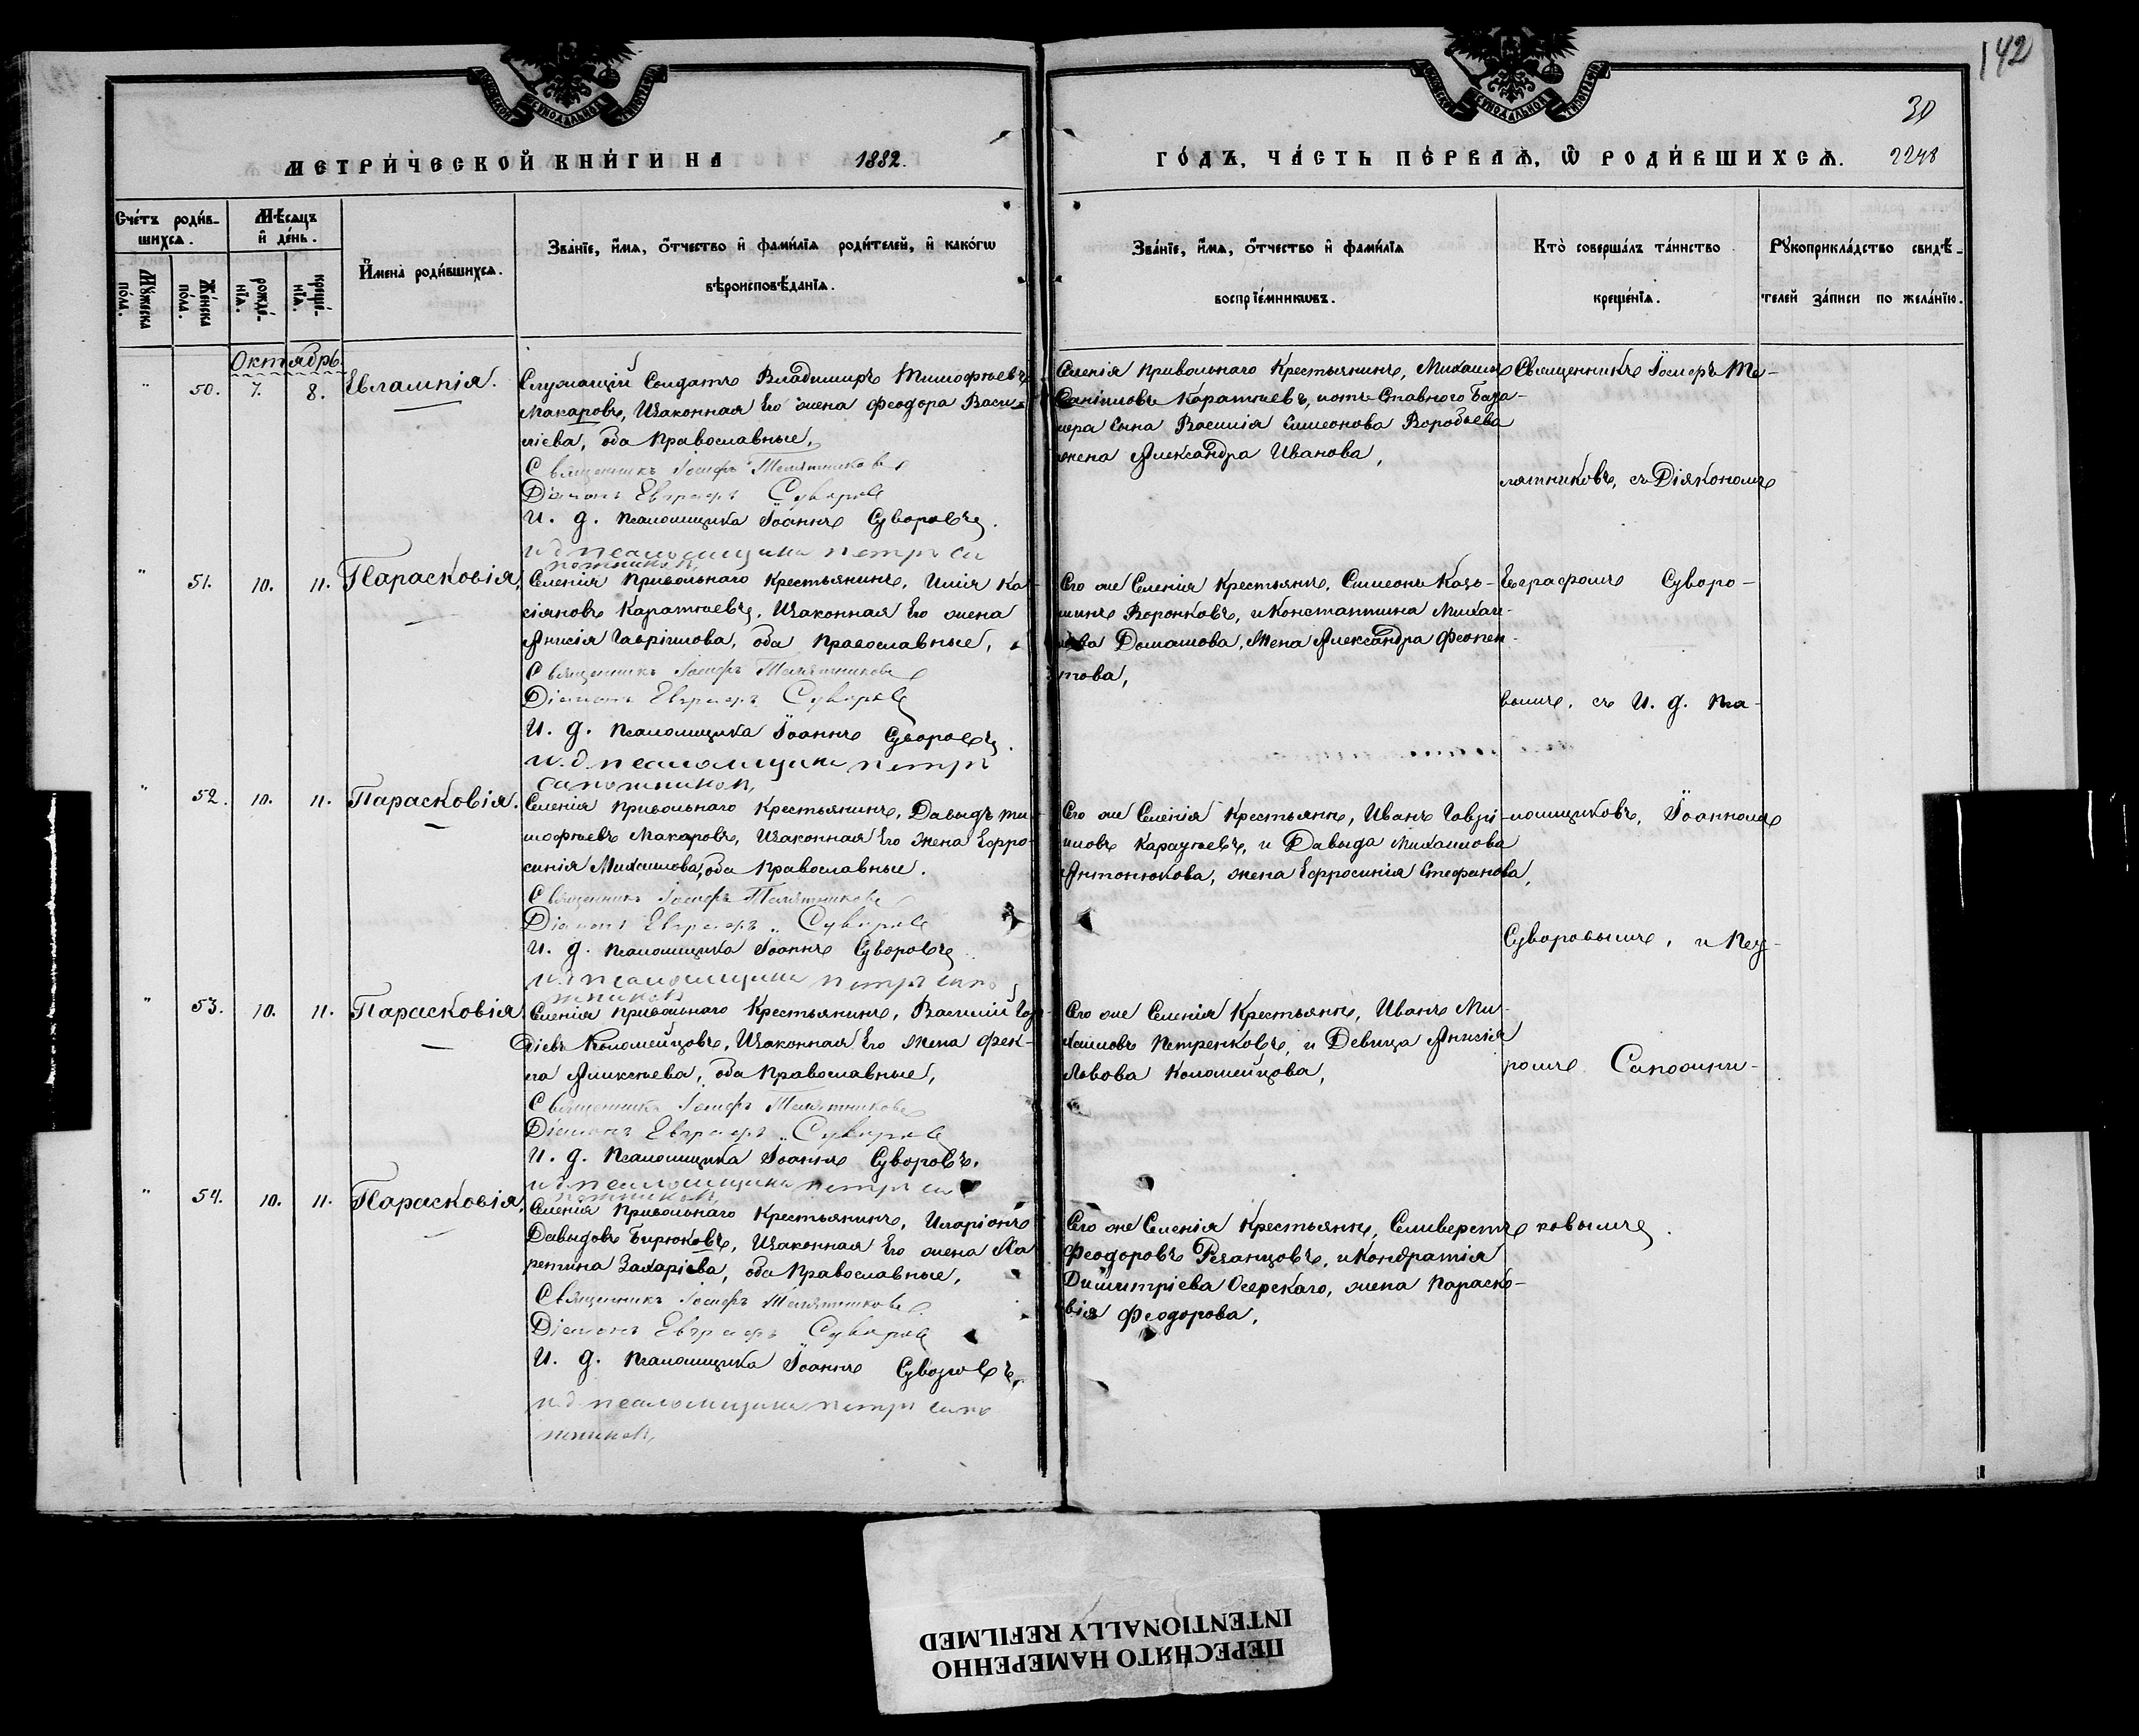 142
30
МЕТРИ́ЧЕСКОЙ КНИ́ГИ НА 1882.
ГО́ДЪ, ЧА́СТЬ ПЕ́РВАѦ, Ѿ РОДИ́ВШИХСѦ. 2248
Счетъ роди́в-
шихсѧ.
Мѣ́сѧцъ
и҆ де́нь.
Мꙋ́жеска
по́ла.
Же́нска
по́ла.
рожде́-
нїѧ.
креще́-
нїѧ.
И҆мена̀ роди́вшихсѧ.
Зва́нїе, и҆́мѧ, ѻ҆́тчество и҆ фами́лїѧ роди́телей, и҆ како́гѡ
вѣроисповѣ́данїѧ.
Зва́нїе, и҆́мѧ, ѻ҆́тчество и҆ фами́лїѧ
воспрїе́мникѡвъ.
Кто̀ соверша́лъ та́инство
креще́нїѧ.
Рꙋкоприкла́дство свидѣ́-
телей за́писи по жела́нїю.
Октябрь
" 50. 7. 8. Евлампія.
Служащій Солдатъ Владимиръ Тимофѣевъ
Макаровъ, Изаконная Его жена Феодора Васи-
ліева, оба Православные,
Священникъ Іосифъ Телятниковъ
Діаконъ Евграфъ Суворовъ
И. д. псаломщика Іоаннъ Суворовъ.
и д псаломщика петръ са
пожников
Селенія Привольнаго Крестьянинъ, Михаилъ
Каратаевъ, Ставного
Сына Василія Симеонова Воробьева
жена Александра Иванова,
Священникъ Іосифъ Те-
лятниковъ, съ Діякономъ
" 51. 10. 11. Парасковія,
Селенія Привольнаго Крестьянинъ, Илія Ка-
сіяновъ Каратаевъ, Изаконная Его жена
Анисія Гавріилова, оба Православные,
Священникъ Іосифъ Телятниковъ
Діаконъ Евграфъ Суворовъ
И. д. псаломщика Іоаннъ Суворовъ.
и. д псаломщика петръ
сапожников
Его же Селенія Крестьянъ, Симеонъ Козь-
минъ Воронковъ, и Константина Михаи-
лова Домашова, Жена Александра Феопен-
това,
Евграфомъ Суворо-
вымъ, съ И. д. пса-
" 52. 10. 11. Парасковія.
Селенія Привольнаго Крестьянинъ, Давыдъ Ти-
мофѣевъ Макаровъ, Изаконная Его Жена Ефро-
синія Михаилова, оба Православные.
Священникъ Іосифъ Телятниковъ
Діаконъ Евграфъ Суворовъ
И. д. псаломщика Іоаннъ Суворовъ
и. д псаломщика петръ сапо
жников
Его же Селенія Крестьянъ, Иванъ Гаврі-
иловъ Каратаевъ, и Давыда Михаилова
Антонюкова, жена Ефросинія Стефанова,
ломщиковъ, Іоанномъ
Суворовымъ, и Пет-
" 53. 10. 11. Парасковія
Селенія Привольнаго Крестьянинъ, Василій Гор-
діевъ Коломейцовъ, Изаконная Его Жена Фек-
ла Алиексѣева, оба Православные,
Священникъ Іосифъ Телятниковъ
Діаконъ Евграфъ Суворовъ
И. д. псаломщика Іоаннъ Суворовъ.
и д псаломщика петръ са
пожников
Его же Селенія Крестьянъ, Иванъ Ми-
хаиловъ Петренковъ, и Девица Анисія
Львова Коломейцова,
ромъ Сапожни-
" 54. 10. 11. Парасковія,
Селенія Привольнаго Крестьянинъ, Иларіонъ
Давыдовъ Бирюковъ, Изаконная Его жена Ха
ретина Захаріева, оба Православные,
Священникъ Іосифъ Телятниковъ
Діаконъ Евграфъ Суворовъ
И. д. псаломщика Іоаннъ Суворовъ,
и д псаломщика петръ сапо
жников
Его же Селенія Крестьянъ, Селиверстъ
Феодоровъ Резанцовъ, и Кондратія
Димитріева Осерскаго, жена Параско-
вія Феодорова,
ковымъ.
ПЕРЕСНЯТО НАМЕРЕННО
INTENTIONALLY REFILMED